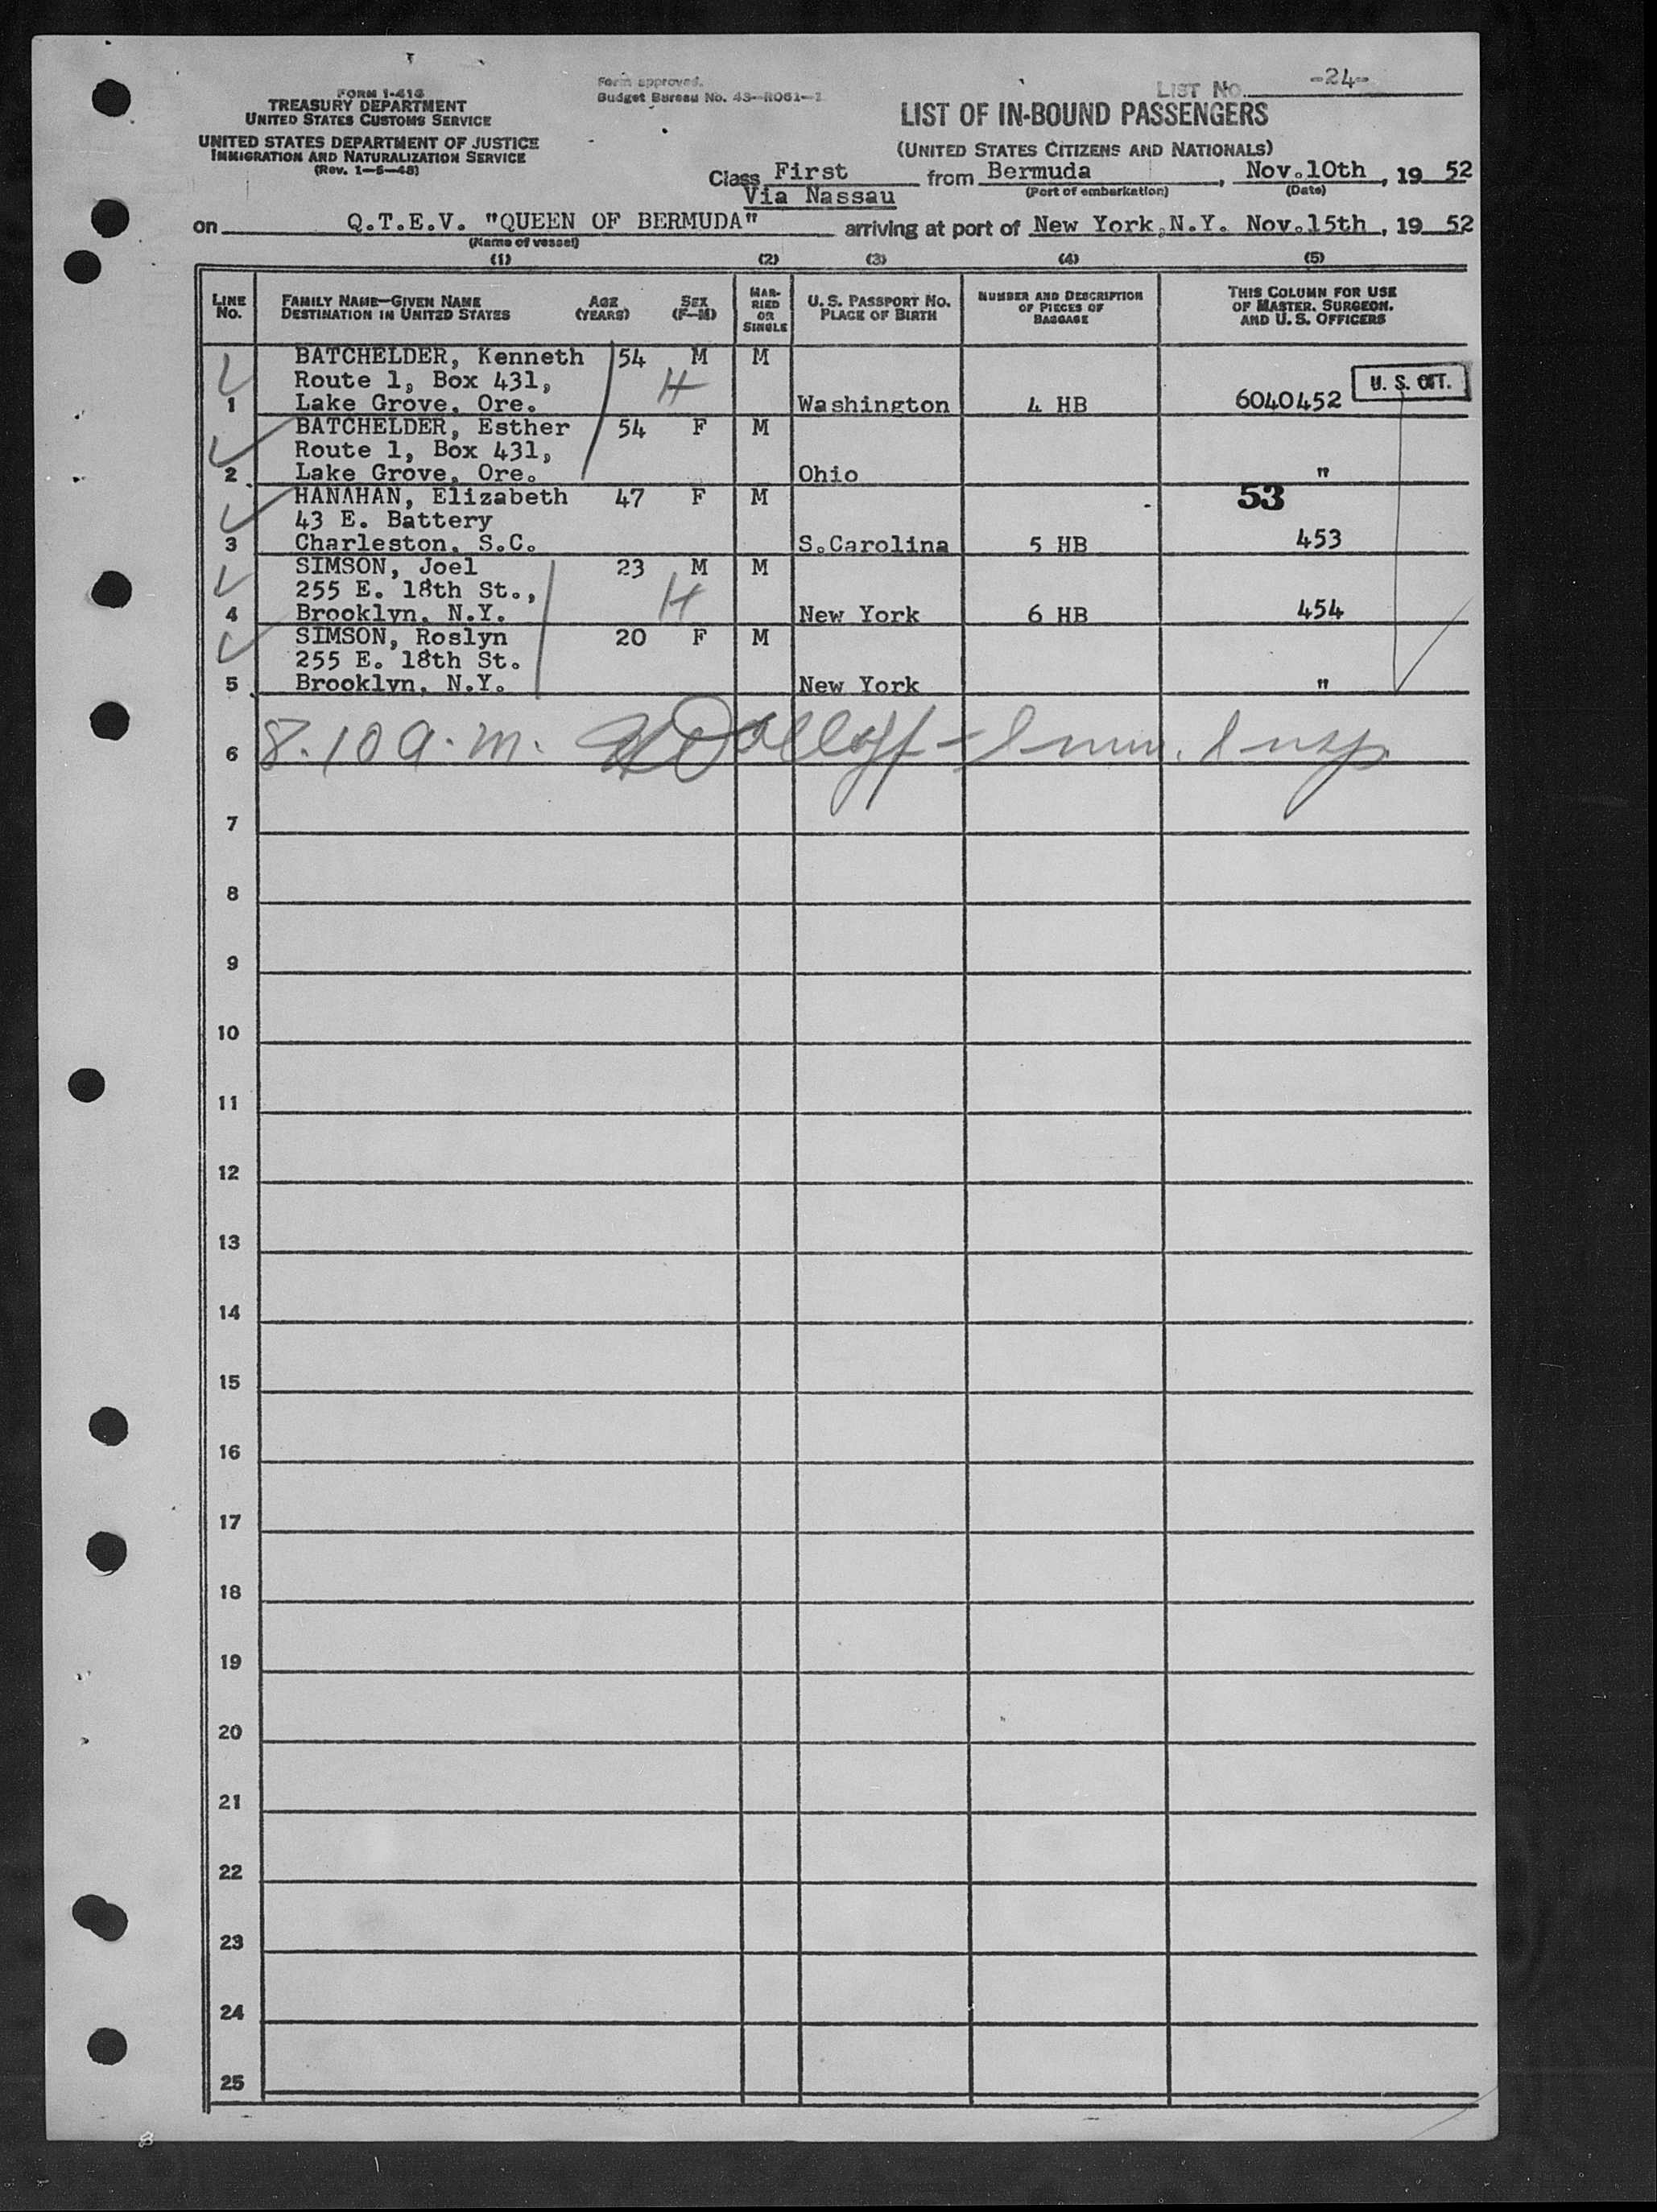 FORM I-416
TREASURY DEPARTMENT
UNITED STATES CUSTOMS SERVICE
UNITED STATES DEPARTMENT OF JUSTICE
IMMIGRATION AND NATURALIZATION SERVICE
(Rev. 1-5-48)
Form approved.
Budget Bureau No. 43-R061-1
LIST No. -24-
LIST OF IN-BOUND PASSENGERS
(UNITED STATES CITIZENS AND NATIONALS)
Class First from Bermuda, Nov.10th, 19 52
Via Nassau (Port of embarkation) (Date)
on Q.T.E.V. "QUEEN OF BERMUDA" arriving at port of New York,N.Y. Nov.15th, 19 52
(Name of vessel)
(1) (2) (3) (4) (5)
LINE No. FAMILY NAME—GIVEN NAME DESTINATION IN UNITED STATES AGE (YEARS) SEX (F-M) MARRIED OR SINGLE U. S. PASSPORT No. PLACE OF BIRTH NUMBER AND DESCRIPTION OF PIECES OF BAGGAGE THIS COLUMN FOR USE OF MASTER, SURGEON, AND U. S. OFFICERS
BATCHELDER, Kenneth 54 M M
Route 1, Box 431, H U. S. CIT.
1 Lake Grove, Ore. Washington 4 HB 6040452
BATCHELDER, Esther 54 F M
Route 1, Box 431,
2 Lake Grove, Ore. Ohio "
HANAHAN, Elizabeth 47 F M 53
43 E. Battery
3 Charleston, S.C. S.Carolina 5 HB 453
SIMSON, Joel 23 M M
255 E. 18th St., H
4 Brooklyn, N.Y. New York 6 HB 454
SIMSON, Roslyn 20 F M
255 E. 18th St.
5 Brooklyn, N.Y. New York "
6 8.10 a.m. Imm. Insp
7
8
9
10
11
12
13
14
15
16
17
18
19
20
21
22
23
24
25